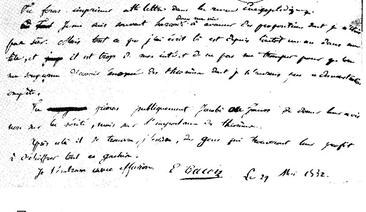 Tu feras imprimer cette lettre dans la revue Encyclopédique.
Je me suis souvent hasardé dans ma vie à avancer des propositions dont je n'étais
pas sûr. Mais tout ce que j'ai écrit là est depuis bientôt un an dans ma
tête, et il est trop de mon intérêt de ne pas me tromper pour qu'on
me soupçonne d'avoir énoncé des théorèmes dont je n'aurais pas la démonstration
complète.
Tu prieras publiquement Jacobi ou Gauss de donner leur avis
non sur la vérité, mais sur l'importance des théorèmes.
Après cela il se trouvera, j'espère, des gens qui trouveront leur profit
à déchiffrer tout ce gachis.
Je t'embrasse avec effusion. E Galois Le 29 Mai 1832.